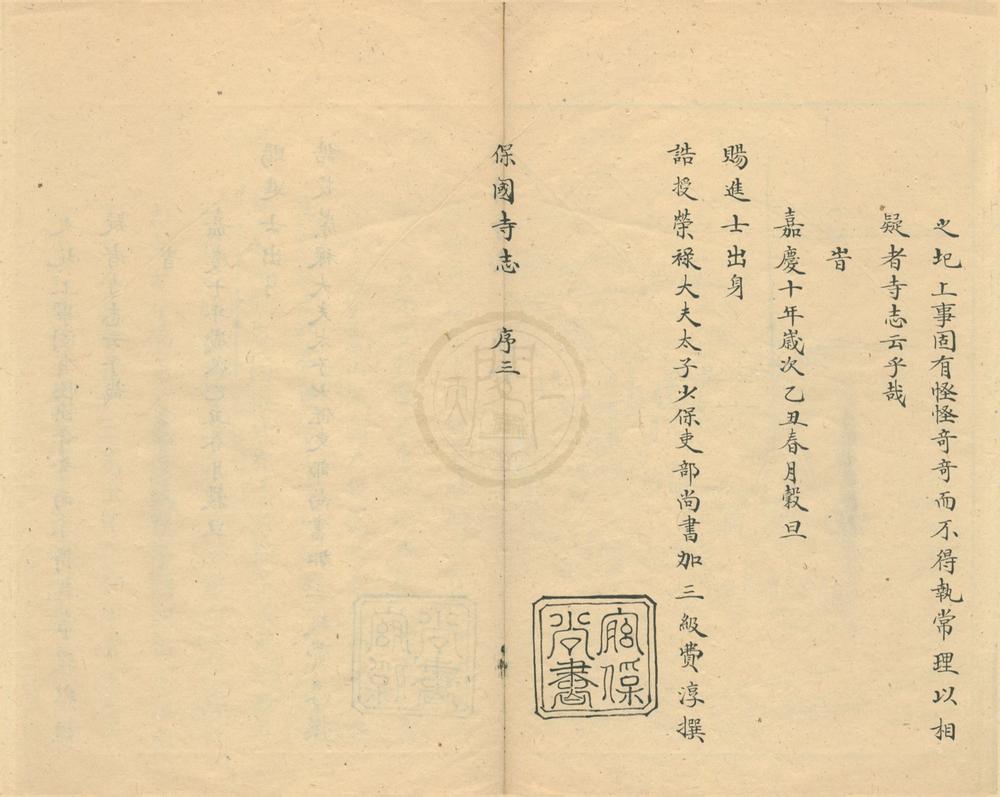 之圯上事固有怪怪奇奇而不得執常理以相
疑者寺志云乎哉
旹
嘉慶十年歲次乙丑春月穀旦
賜進士出身
誥授榮祿大夫太子少保吏部尚書加三級費淳撰
宮保
尚書
保國寺志 序三